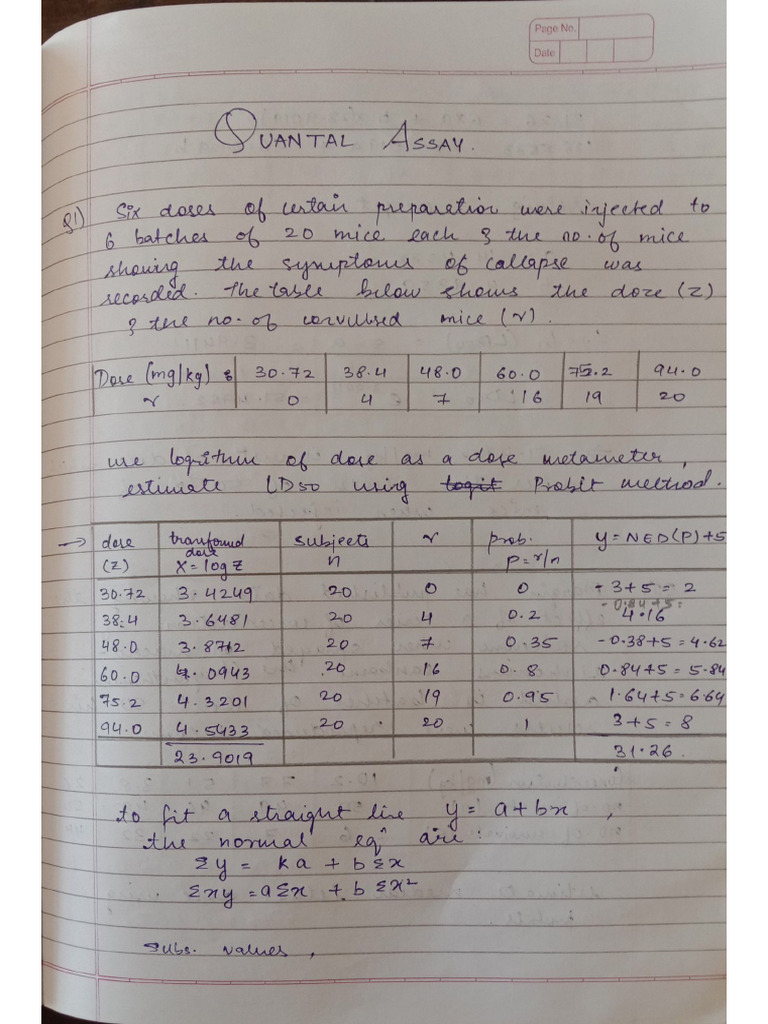 Page No.
Date
QUANTAL ASSAY.
Q1) Six doses of certain preparation were injected to
6 batches of 20 mice each & the no. of mice
showing the symptoms of collapse was
recorded. The table below shows the doze (z)
& the no. of convulsed mice (r).
Dose (mg/kg) : 30.72 38.4 48.0 60.0 75.2 94.0
r 0 4 7 16 19 20
use logrithm of dose as a dose metameter,
estimate LD50 using logit Probit method.
→ dose transformed subjects r prob. y = NED(P)+5
dose
(z) X = log z n P = r/n
30.72 3.4249 20 0 0 -3+5 = 2
-0.84+5=
38.4 3.6481 20 4 0.2 4.16
48.0 3.8712 20 7 0.35 -0.38+5 = 4.62
60.0 4.0943 20 16 0.8 0.84+5 = 5.84
75.2 4.3201 20 19 0.95 1.64+5 = 6.64
94.0 4.5433 20 20 1 3+5 = 8
23.9019 31.26.
to fit a straight line y = a + bx ,
the normal eqn are :
Σy = ka + bΣx
Σxy = aΣx + bΣx²
Subs. values ,